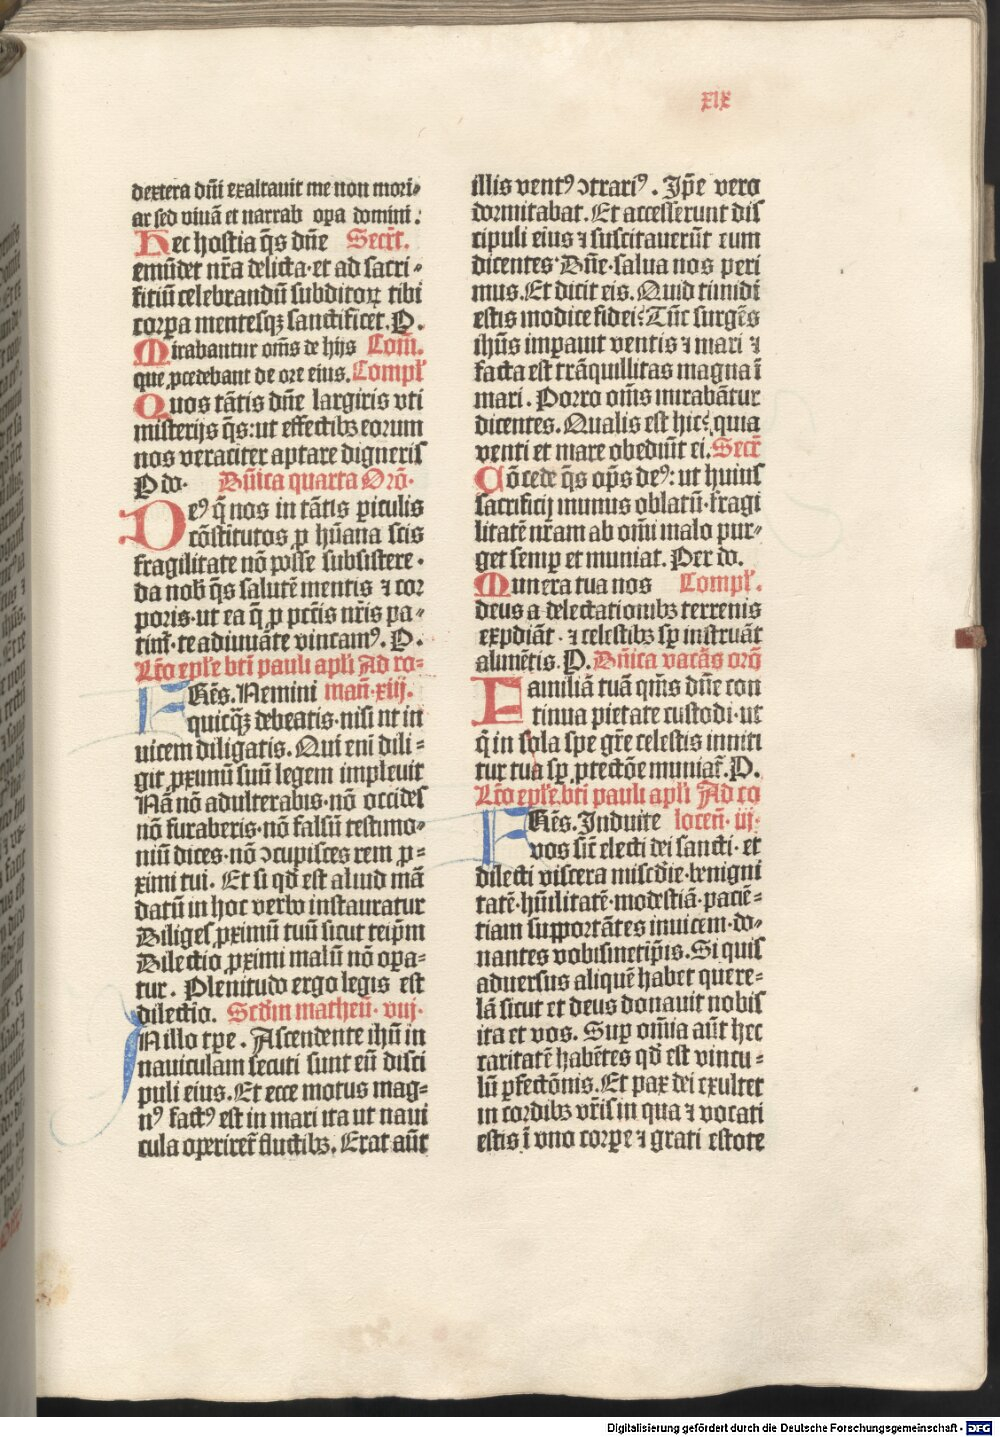 xix
dextera dñi exaltauit me non mori⸗
ar sed viuã et narrab opa domini.
Hec hostia q̃s dñe Secr̃t.
emũdet nr̃a delicta·et ad sacri⸗
fitiũ celebrandũ subditoꝝ tibi
corꝑa mentesqꝫ sanctificet. P.
Mirabantur om̃s de hijs Com̃.
que ꝓcedebant de ore eius. Compl̃
Quos tãtis dñe largiris vti
misterijs q̃s: ut effectibꝫ eorum
nos veraciter aptare digneris
P do. Dñica quarta Orõ.
Deꝰ q̃ nos in tãtis ꝑiculis
cõstitutos ꝓ hũana scis
fragilitate nõ posse subsistere.
da nob̃ q̃s salutẽ mentis ⁊ cor
poris·ut ea q̃ ꝓ pctĩs nr̃is pa⸗
timr̃·te adiuuãte vincamꝰ. P.
Lc̃o epl̃e bt̃i pauli apl̃i Ad ro⸗
FRẽs. Nemini man̄·xiij.
quicq̃ꝫ debeatis·nisi ut in
uicem diligatis. Qui eni dili⸗
git ꝓximũ suũ legem impleuit
Nã nõ adulterabis·nõ occides
nõ furaberis·nõ falsũ testimo⸗
niũ dices·nõ ↄcupisces rem ꝓ⸗
ximi tui. Et si qd̃ est aliud mã
datũ in hoc verbo instauratur
Diliges ꝓximũ tuũ sicut teip̃m
Dilectio ꝓximi malũ nõ opa⸗
tur. Plenitudo ergo legis est
dilectio. Scd̃m matheũ·viij.
IN illo tꝑe. Ascendente ih̃u in
nauiculam secuti sunt eũ disci
puli eius. Et ecce motus mag⸗
nꝰ factꝰ est in mari ita ut naui
cula operiret̃ fluctibꝫ. Erat aũt
illis ventꝰ ↄtrariꝰ. Ip̃e vero
dormitabat. Et accesserunt dis
cipuli eius ⁊ suscitauerũt eum
dicentes Dñe·salua nos peri
mus. Et dicit eis. Quid timidi
estis modice fidei? Tũc surgẽs
ih̃us imꝑauit ventis ⁊ mari ⁊
facta est trãquillitas magna ĩ
mari. Porro om̃s mirabãtur
dicentes. Qualis est hic? quia
venti et mare obediũt ei. Secr̃
Cõcede q̃s op̃s deꝰ: ut huius
sacrificij munus oblatũ·fragi
litatẽ nr̃am ab om̃i malo pur⸗
get semꝑ et muniat. Per do.
Munera tua nos Compl̃.
deus a delectationibꝫ terrenis
expdiãt·⁊ celestibꝫ sꝑ instruãt
alimẽtis. P. Dñica vacãs orõ
Familiã tuã qm̃s dñe con
tinua pietate custodi·ut
q̃ in sola spe gr̃e celestis inniti
tur tua sꝑ ꝓtectõe muniat̃. P.
Lc̃o epl̃e·bt̃i pauli apl̃i Ad co
FRẽs. Induite locen̄·iij·
vos sic̃ electi dei sancti·et
dilecti viscera miscd̃ie·benigni
tatẽ·hũilitatẽ·modestiã·paciẽ⸗
tiam supportãtes inuicem·do⸗
nantes vobismetip̃is. Si quis
aduersus aliquẽ habet quere⸗
lã sicut et deus donauit nobis
ita et vos. Suꝑ om̃ia aũt hec
caritatẽ habẽtes qd̃ est vincu⸗
lũ ꝑfectõnis. Et pax dei exultet
in cordibꝫ vr̃is in qua ⁊ vocati
estis ĩ vno corꝑe ⁊ grati estote
Digitalisierung gefördert durch die Deutsche Forschungsgemeinschaft - DFG